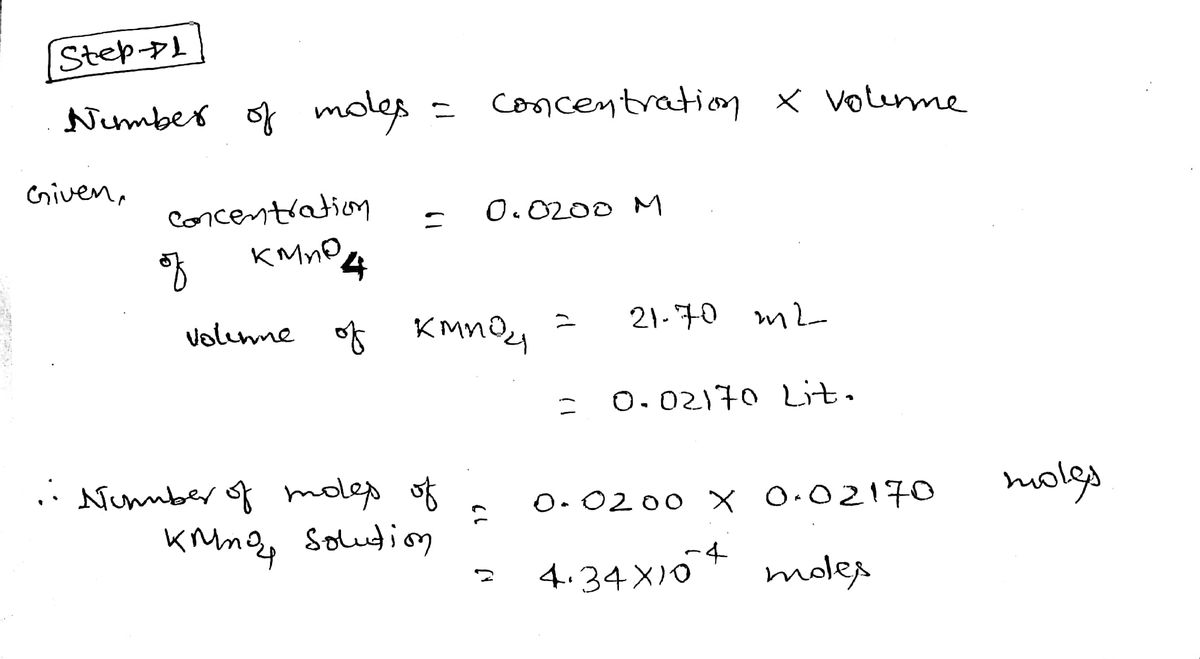 Step→1
Number of moles = concentration × volume
Given,
concentration = 0.0200 M
of KMnO4
volume of KMnO4 = 21.70 mL
= 0.02170 Lit.
∴ Number of moles of = 0.0200 × 0.02170 moles
KMnO4 solution
= 4.34×10^-4 moles